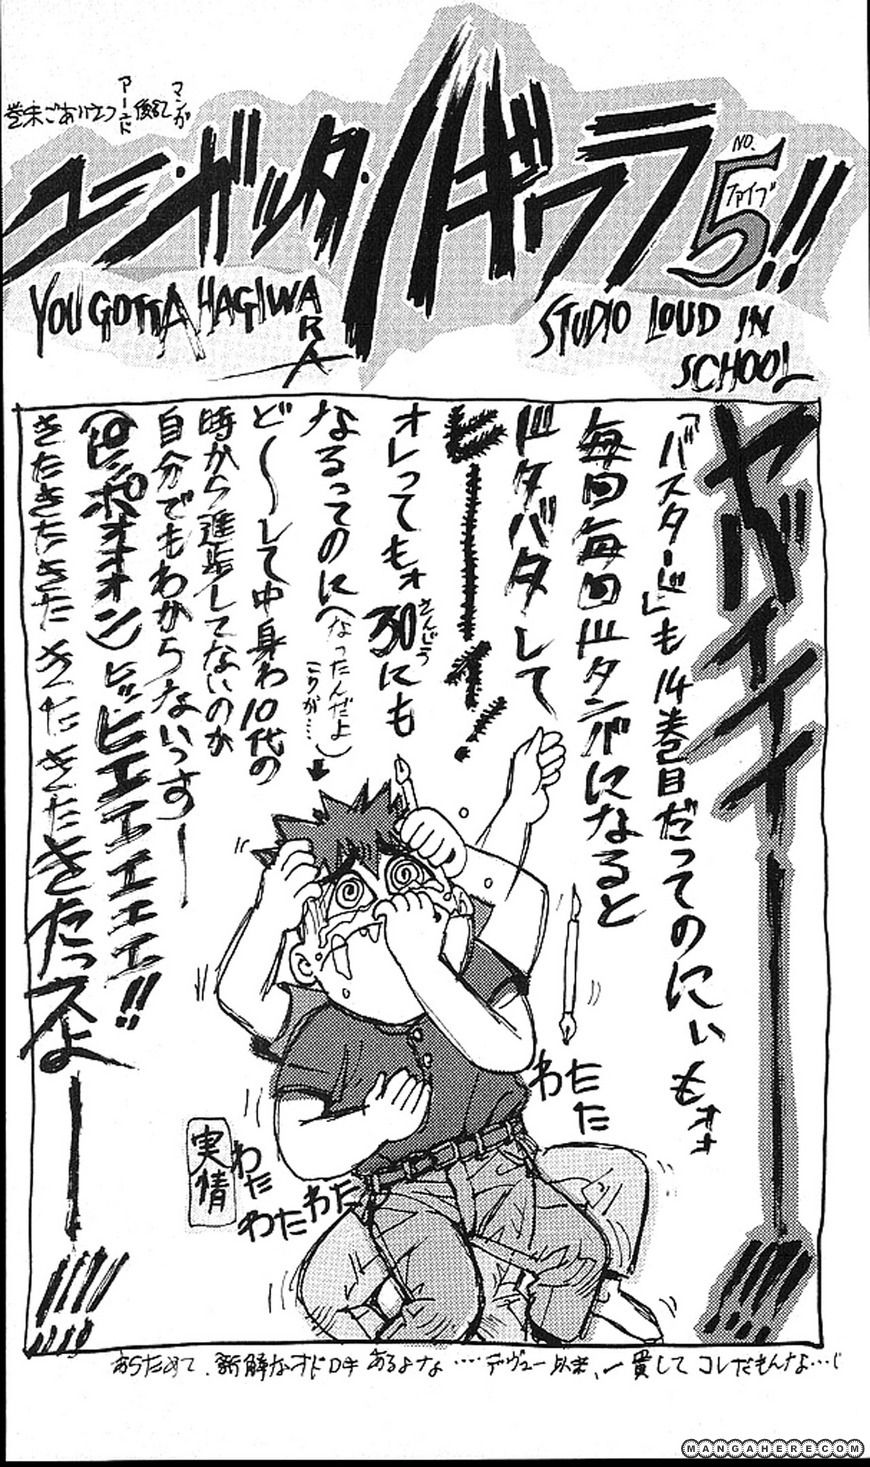 巻末ごあいさつ
アーンド
後記
マンガ
ユー・ガッタ・ハギワラ
NO.
5!!
ファイブ
YOU GOTTA HAGIWARA
STUDIO LOUD IN
SCHOOL
ヤバイイイイ――!!!!
「バスタード」も14巻目だってのにィもォォ
毎回毎回ドタンバになると
ドタバタして
ヒーーイ!
オレってもォ30にも
さんじう
なるってのに(なったんだよ)
こりが…
ど〜して中身わ10代の
時から進歩してないのか
自分でもわからないっすー
(ピンポオオオン)ヒッヒエエエエエエ!!
きたきたきたきたきたきたきたっスよ――!!!!
わたた
わたわたわた
実情
あらためて、新解なオドロキあるよなな‥‥デヴュー以来、一貫してコレだもんなァ…
MANGAHERE.COM